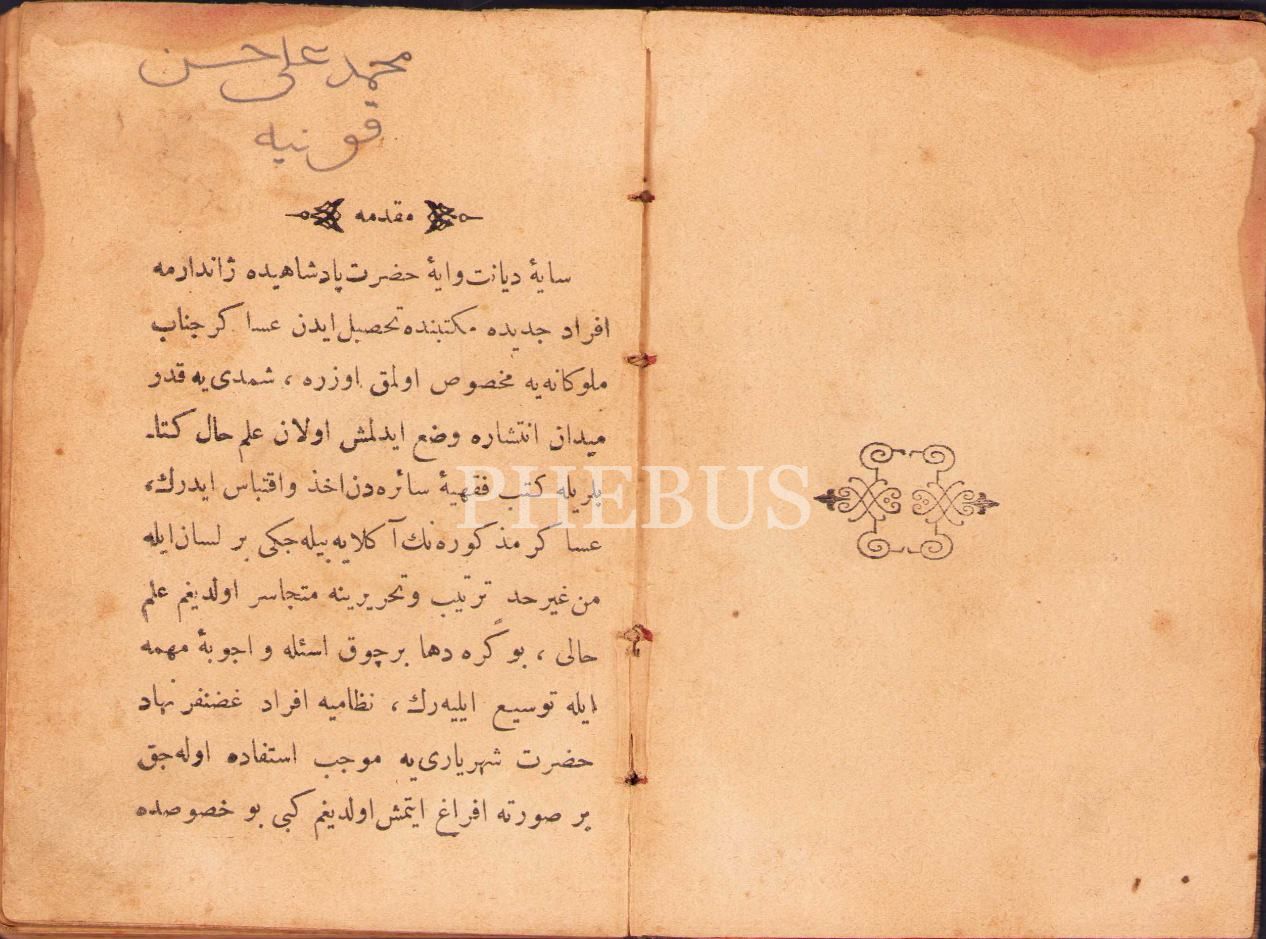 محمد علی حسن
قونیه
مقدمه
سایهٔ دیانت‌وایهٔ حضرت پادشاهیده ژاندارمه
افراد جدیده مکتبنده تحصیل ایدن عساکر جناب
ملوکانه‌یه مخصوص اولمق اوزره ، شمدی‌یه قدر
میدان انتشاره وضع ایدلمش اولان علم حال کتا-
بلریله کتب فقهیهٔ سائره‌دن اخذ واقتباس ایدرك،
عساکر مذکوره‌نك آکلایه‌بیله‌جکی بر لسان ایله
من غیر حدٍ ترتیب وتحریرینه متجاسر اولدیغم علم
حالی ، بو کره دها برچوق اسئله و اجوبهٔ مهمه
ایله توسیع ایلیه‌رك ، نظامیه افراد غضنفر نهاد
حضرت شهریاری‌یه موجب استفاده اوله‌جق
بر صورته افراغ ایتمش اولدیغم کبی بو خصوصده
PHEBUS